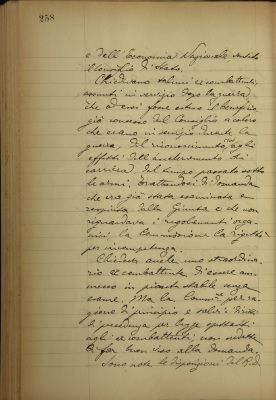 258
e dell'Economia Nazionale sentito
il Consiglio di Stato.
Chiedevano taluni ex combattenti,
assunti in servizio dopo la guerra,
che ad essi fosse esteso il beneficio
già concesso dal Consiglio a coloro
che erano in servizio durante la
guerra, del riconoscimento agli
effetti dell'acceleramento di
carriera, del tempo passato sotto
le armi. Trattandosi di domanda
che era già stata esaminata e
respinta dalla Giunta e che non
riguardava i regolamenti orga-
nici, la Commissione la rigettò
per incompetenza.
Chiedeva anche uno straordina-
rio ex combattente di essere am-
messo in pianta stabile senza
esame. Ma la Comm.ne per ra-
gione di principio e salvi i diritti
di precedenza per legge spettanti
agli ex combattenti, non credette
di far buon viso alla domanda.
Sono note le disposizioni del R.D.